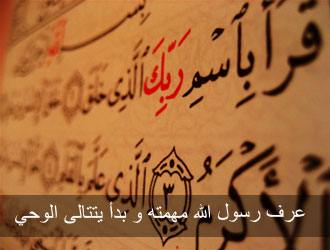 قْرَأْ بِٱسْمِ رَبِّكَ ٱلَّذِى خَلَقَ
لْأَكْرَمُ ٣ ٱلَّذِى
عرف رسول الله مهمته و بدأ يتتالى الوحي